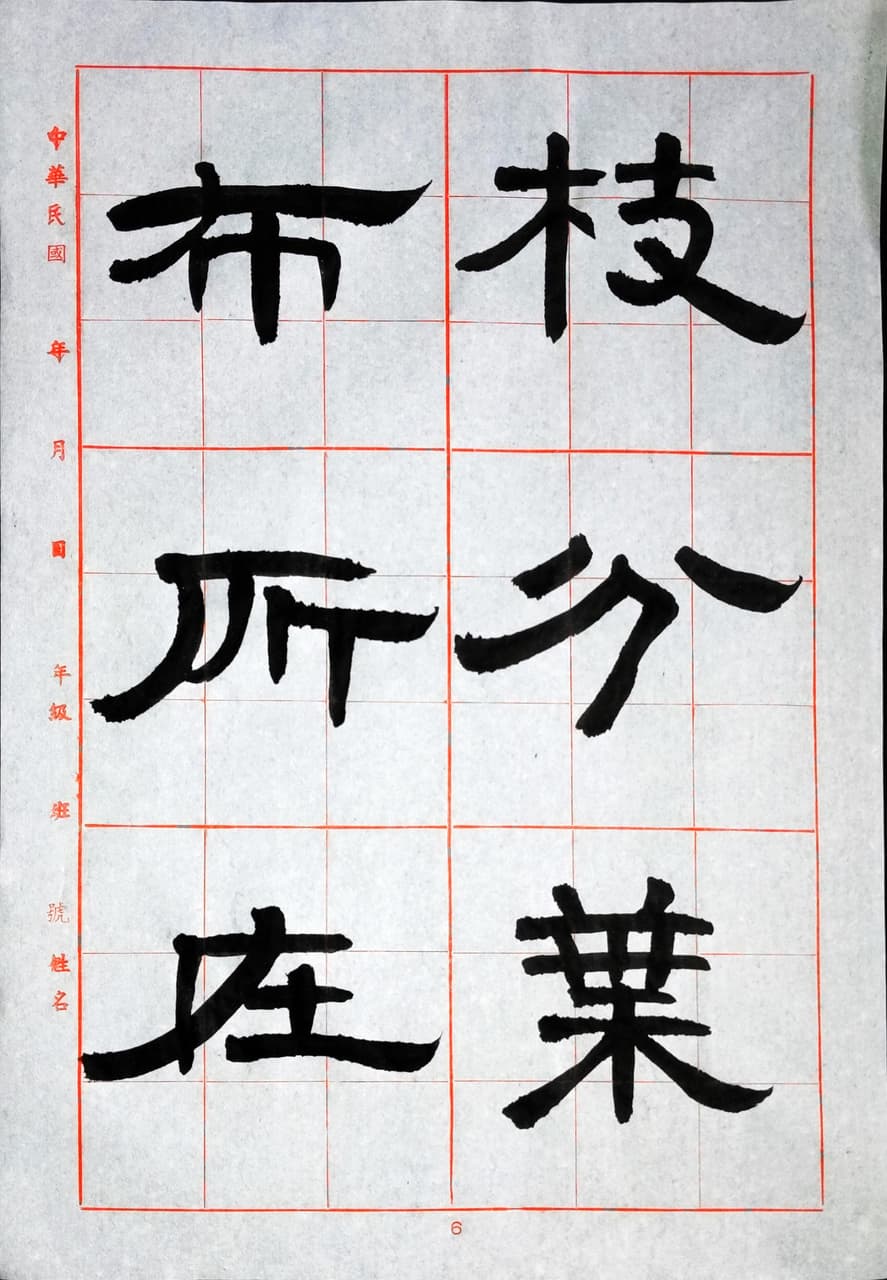 枝分葉
布所在
中華民國 年 月 日 年級 班 號 姓名
6